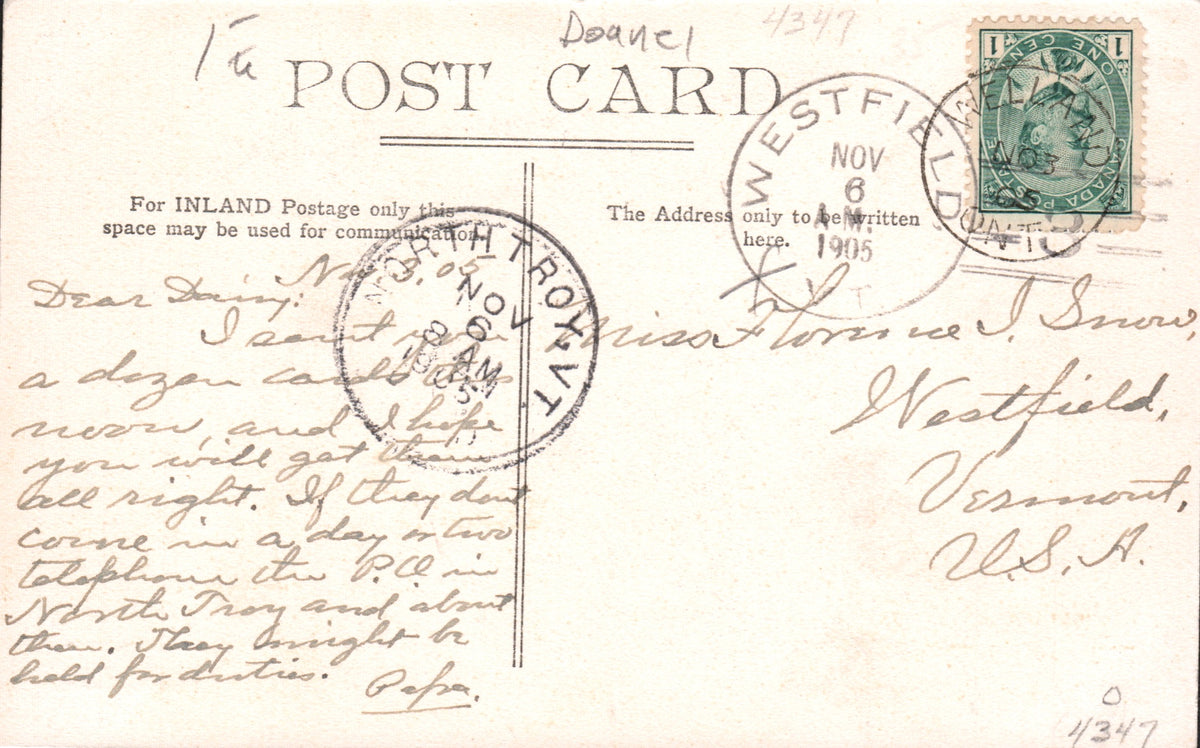 Doane
4347
POST CARD
1 ONE CENT 1
CANADA POSTAGE
WELLAND
NO 3
05
ONT
WESTFIELD
NOV
6
A.M.
1905
VT
For INLAND Postage only this
space may be used for communication
The Address only to be written
here.
NORTH TROY, VT.
NOV
6
8 AM
1905
Nov. 3, 05
Dear Daisy:
I sent you
a dozen cards this
noon, and I hope
you will get them
all right. If they dont
come in a day or two
telephone the P.O. in
North Troy and about
them. They might be
held for duties.
Papa.
Miss Florence I. Snow,
Westfield,
Vermont,
U.S.A.
0
4347